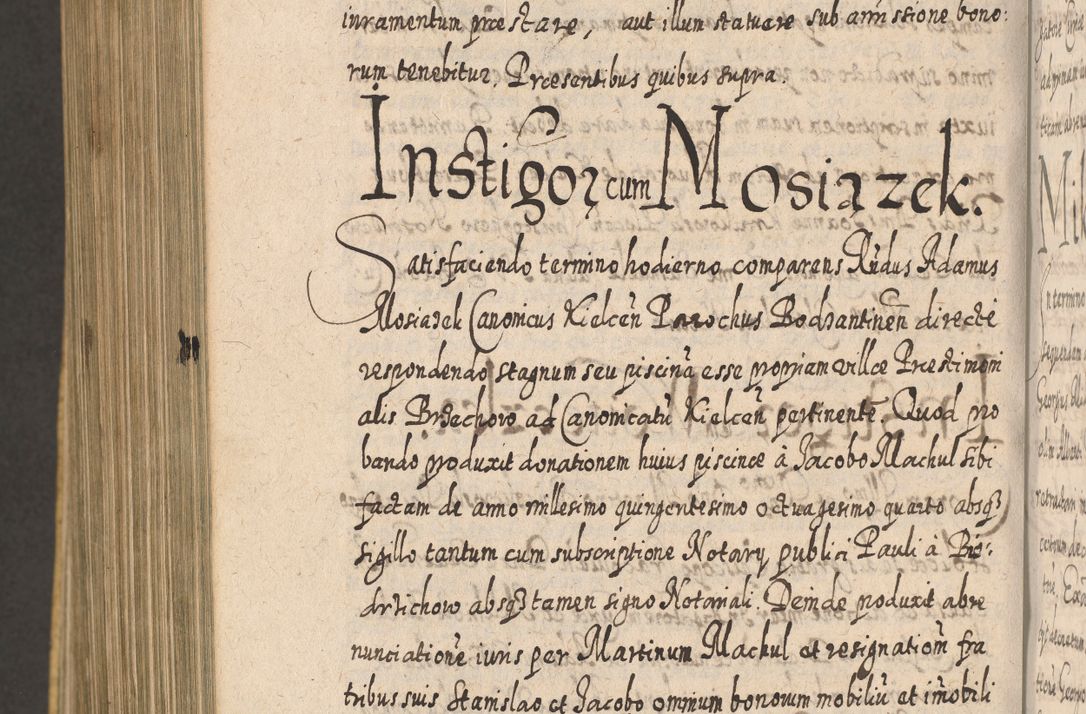 iuramentum præstare, aut illum statuere sub amissione bono:
rum tenebitur. Præsentibus quibus supra.
Instigor cum Mosiązek.
Satisfaciendo termino hodierno comparens Rńdus Adamus
Mosiązek Canonicus Kielceń Parochus Bodzantineń directe
respondendo stagnum seu piscinā esse propriam villæ Præstimoni
alis Brzechow ad Canonicatū Kielceń pertinentē. Quod pro
bando produxit donationem huius piscinæ à Jacobo Machul sibi
factam de anno millesimo quingentesimo octuagesimo quarto absq3
sigillo tantum cum subscriptione Notary publici Pauli à Bie:
drzichow absq3 tamen signo Notariali. Deinde produxit abre
nunciationē iuris per Martinum Machul et resignatiom̄ fra
tribus suis Stanislao et Jacobo omnium bonorum mobiliū et im̄obili